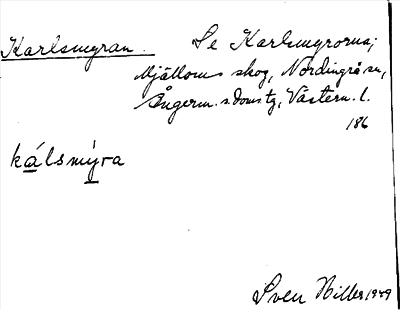 Karlsmyran. Se Karlsmyrorna;
Mjälloms skog, Nordingrå sn,
Ångerm. s. doms tg, Västern. l.
186
kálsmýra
Sven Hiller 1949